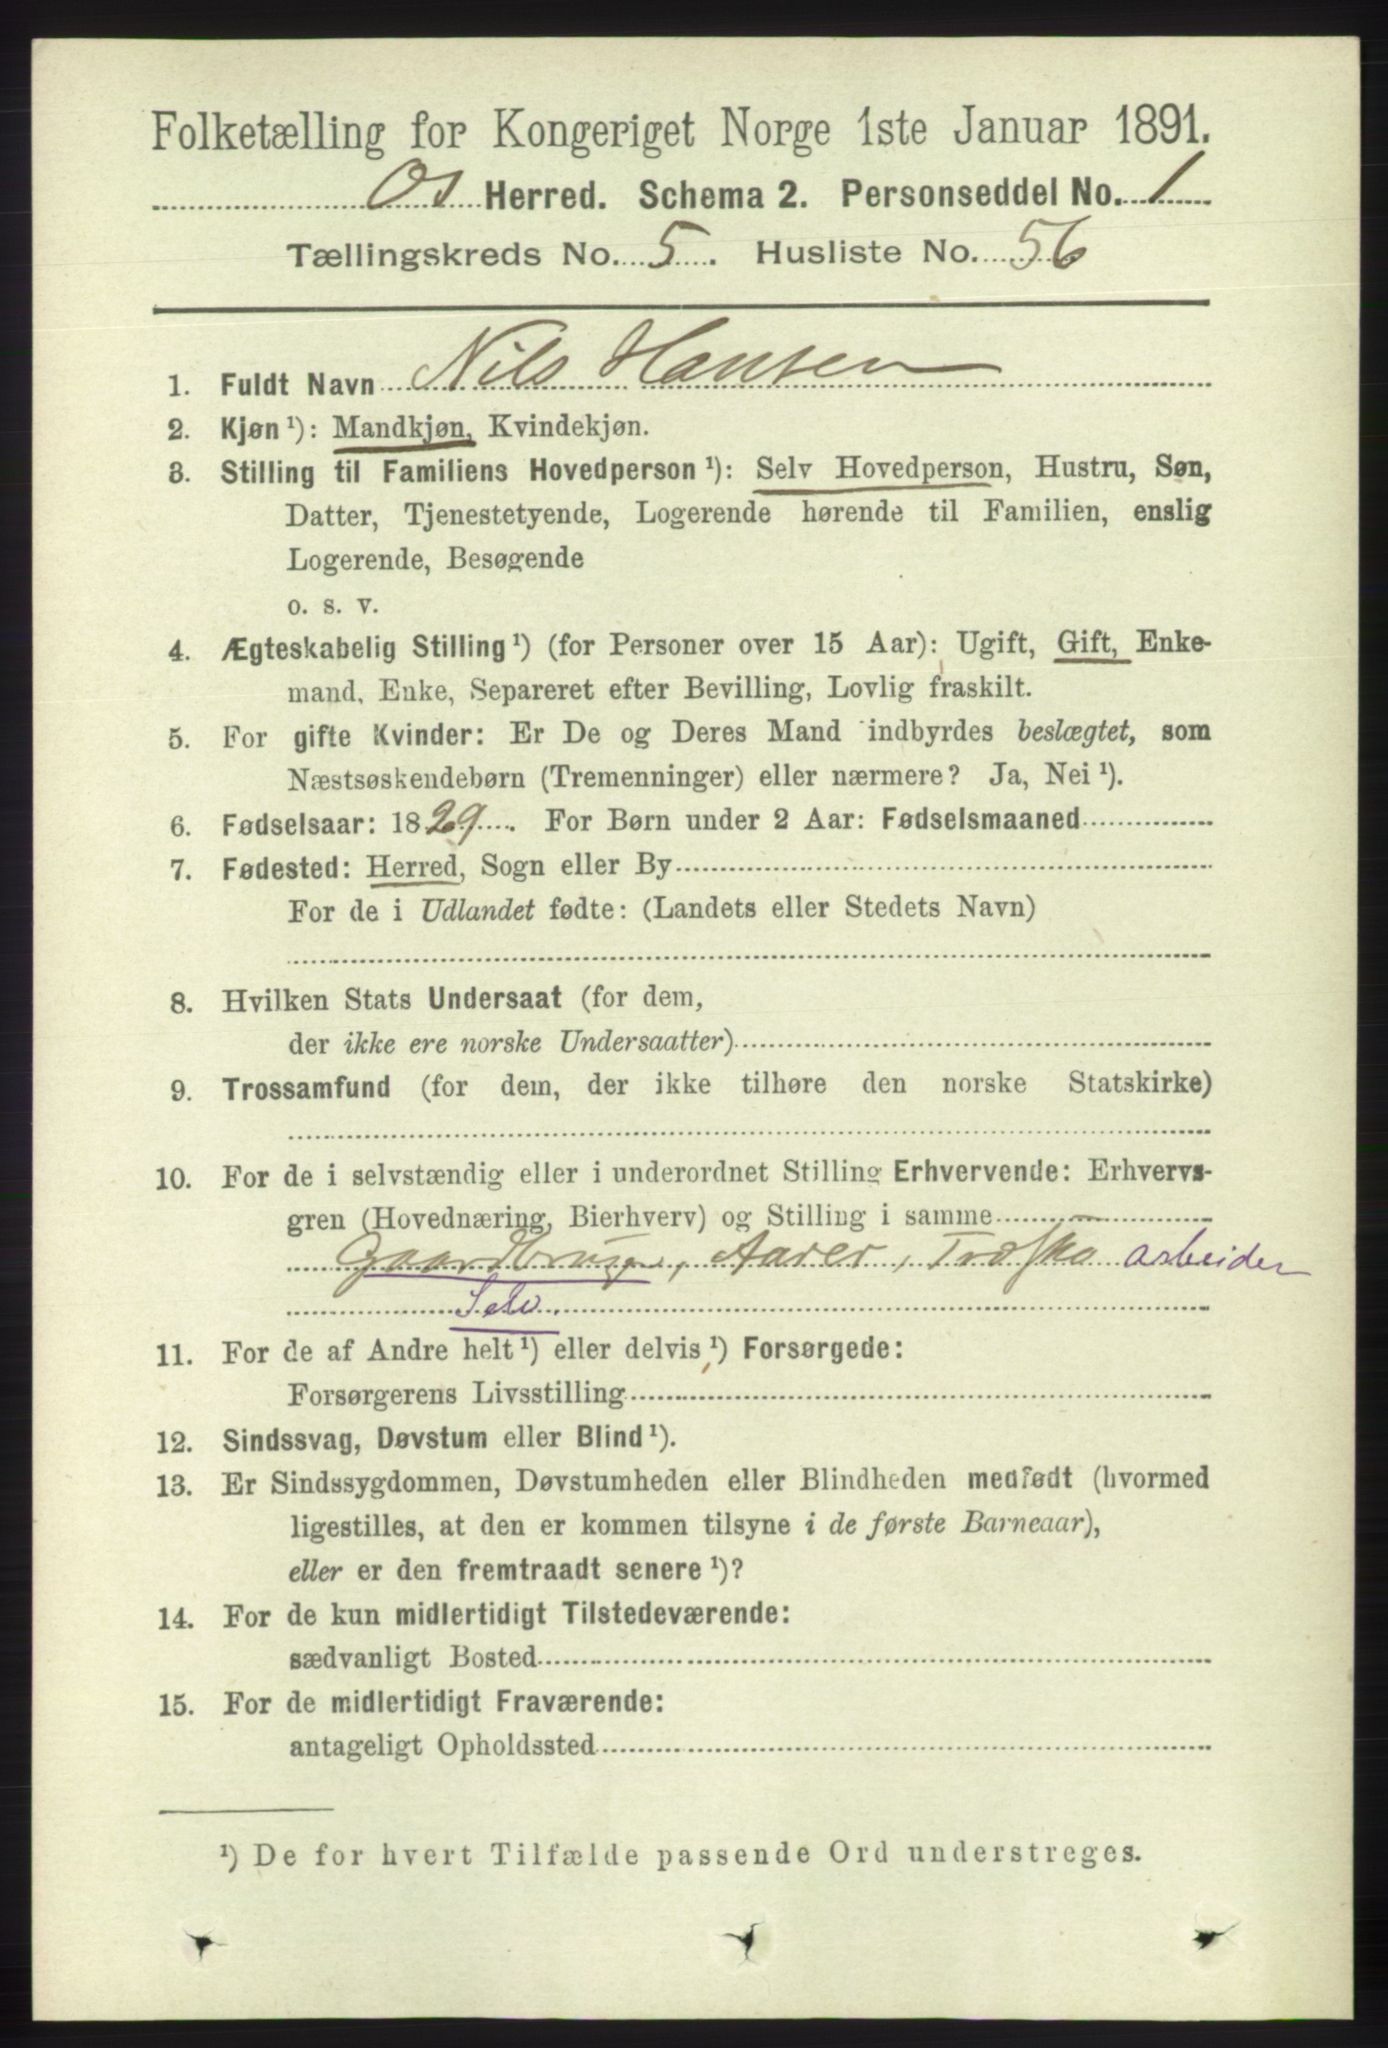 Folketælling for Kongeriget Norge 1ste Januar 1891.
Os Herred. Schema 2. Personseddel No. 1
Tællingskreds No. 5. Husliste No. 56
1. Fuldt Navn Nils Hansen
2. Kjøn ¹): Mandkjøn, Kvindekjøn.
3. Stilling til Familiens Hovedperson ¹): Selv Hovedperson, Hustru, Søn,
Datter, Tjenestetyende, Logerende hørende til Familien, enslig
Logerende, Besøgende
o. s. v.
4. Ægteskabelig Stilling ¹) (for Personer over 15 Aar): Ugift, Gift, Enke-
mand, Enke, Separeret efter Bevilling, Lovlig fraskilt.
5. For gifte Kvinder: Er De og Deres Mand indbyrdes beslægtet, som
Næstsøskendebørn (Tremenninger) eller nærmere? Ja, Nei ¹).
6. Fødselsaar: 1829. For Børn under 2 Aar: Fødselsmaaned
7. Fødested: Herred, Sogn eller By
For de i Udlandet fødte: (Landets eller Stedets Navn)
8. Hvilken Stats Undersaat (for dem,
der ikke ere norske Undersaatter)
9. Trossamfund (for dem, der ikke tilhøre den norske Statskirke)
10. For de i selvstændig eller i underordnet Stilling Erhvervende: Erhvervs-
gren (Hovednæring, Bierhverv) og Stilling i samme
Gaardbruger, Træsko arbeider
Selv.
11. For de af Andre helt ¹) eller delvis ¹) Forsørgede:
Forsørgerens Livsstilling
12. Sindssvag, Døvstum eller Blind ¹).
13. Er Sindssygdommen, Døvstumheden eller Blindheden medfødt (hvormed
ligestilles, at den er kommen tilsyne i de første Barneaar),
eller er den fremtraadt senere ¹)?
14. For de kun midlertidigt Tilstedeværende:
sædvanligt Bosted
15. For de midlertidigt Fraværende:
antageligt Opholdssted
¹) De for hvert Tilfælde passende Ord understreges.